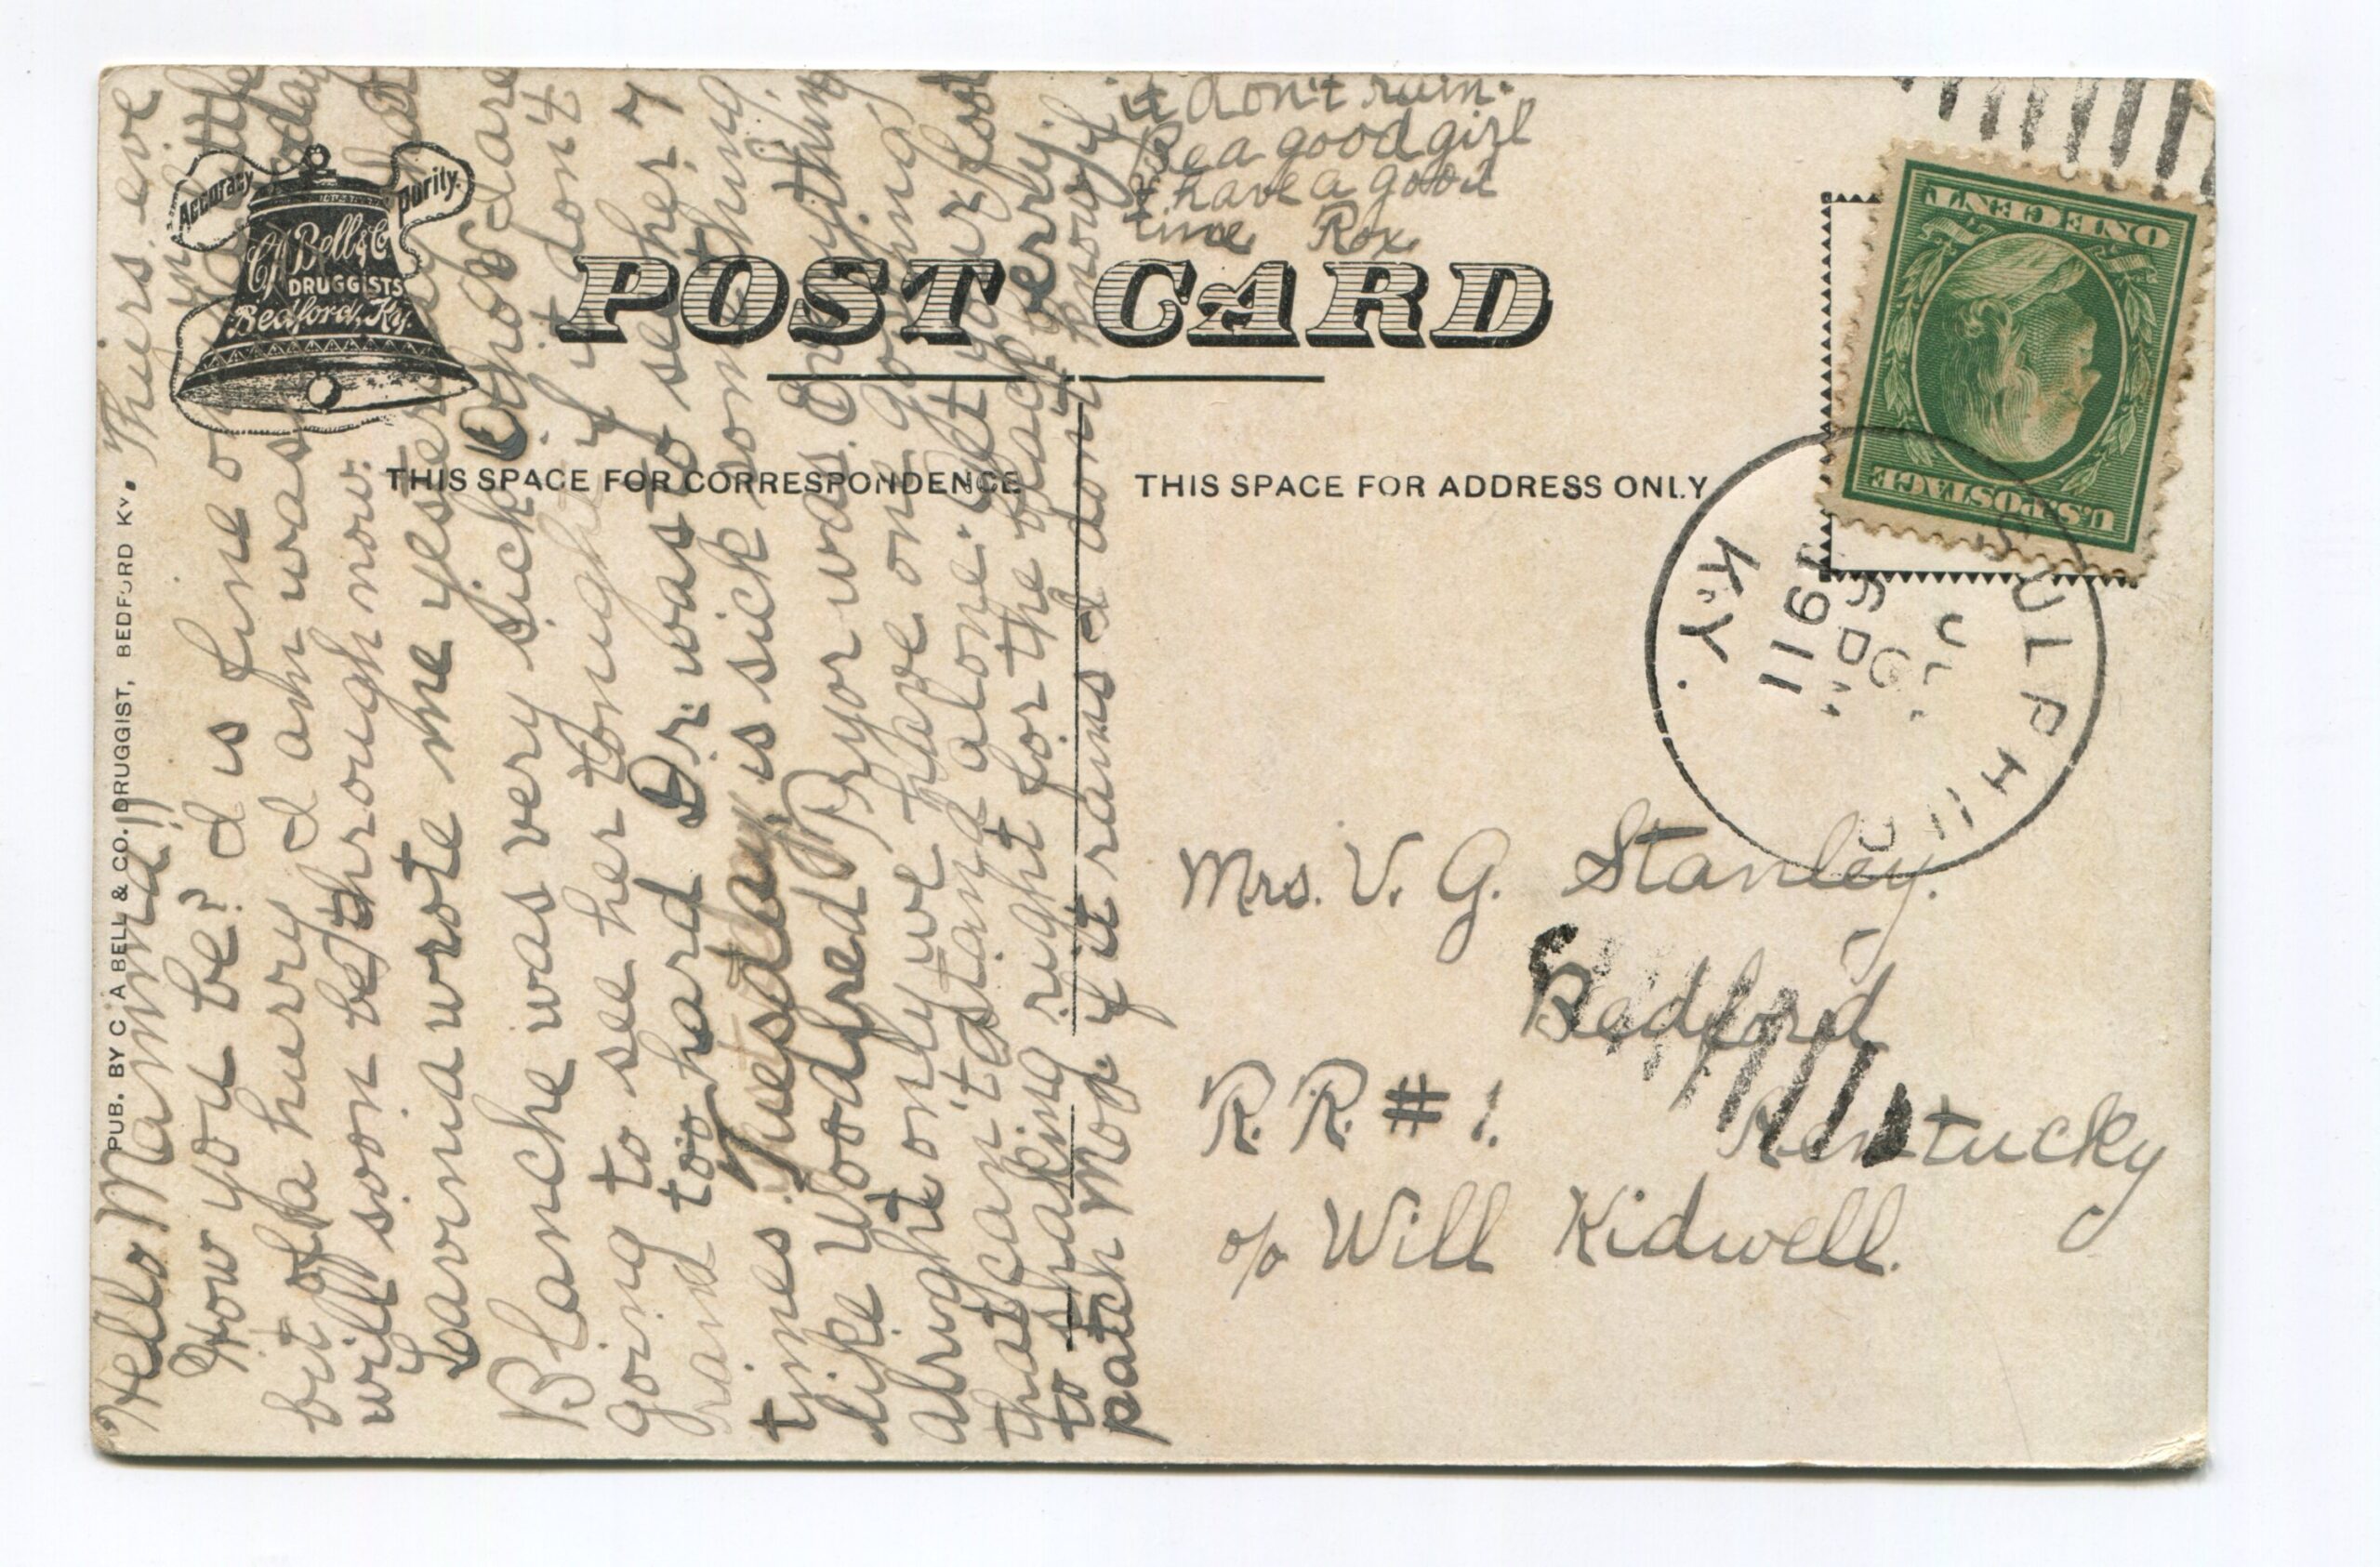 Accuracy
Purity.
C A Bell & Co
DRUGGISTS
Bedford, Ky.
POST CARD
THIS SPACE FOR CORRESPONDENCE
THIS SPACE FOR ADDRESS ONLY
PUB. BY C A BELL & CO. DRUGGIST, BEDFORD KY.
Hello Mamma! Thurs. eve
How you be? I is fine only a little
bit of a hurry I am was today
will soon be through now.
Lavrina wrote me yesterday that
Blanche was very sick. O how I dare
going to see her tonight if it don't
rain too hard Dr. was to see her 7
times Tuesday, is sick something
like Woodfred Pryor was. Everything
alright only we have one gosling
that can't stand alone. Bet your foot
to shaking right for the black berry
patch Mop if it rains I don't know if
it don't rain.
Be a good girl
& have a good
time Rox.
ONE CENT
U.S. POSTAGE
SULPHUR
KY.
JUL
1911
Mrs. V. G. Stanley.
Bedford
R. R. # 1. Kentucky
c/o Will Kidwell.